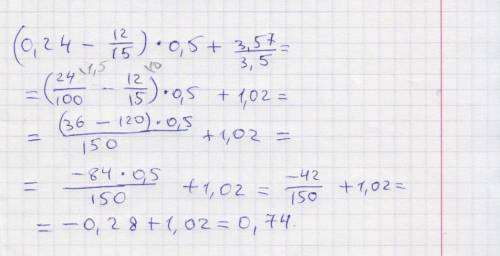 (0,24 − 12/15) · 0,5 + 3,57/3,5 =
= (24/100 \1,5 − 12/15 \10) · 0,5 + 1,02 =
= (36 − 120) · 0,5/150 + 1,02 =
= −84 · 0,5/150 + 1,02 = −42/150 + 1,02 =
= −0,28 + 1,02 = 0,74.